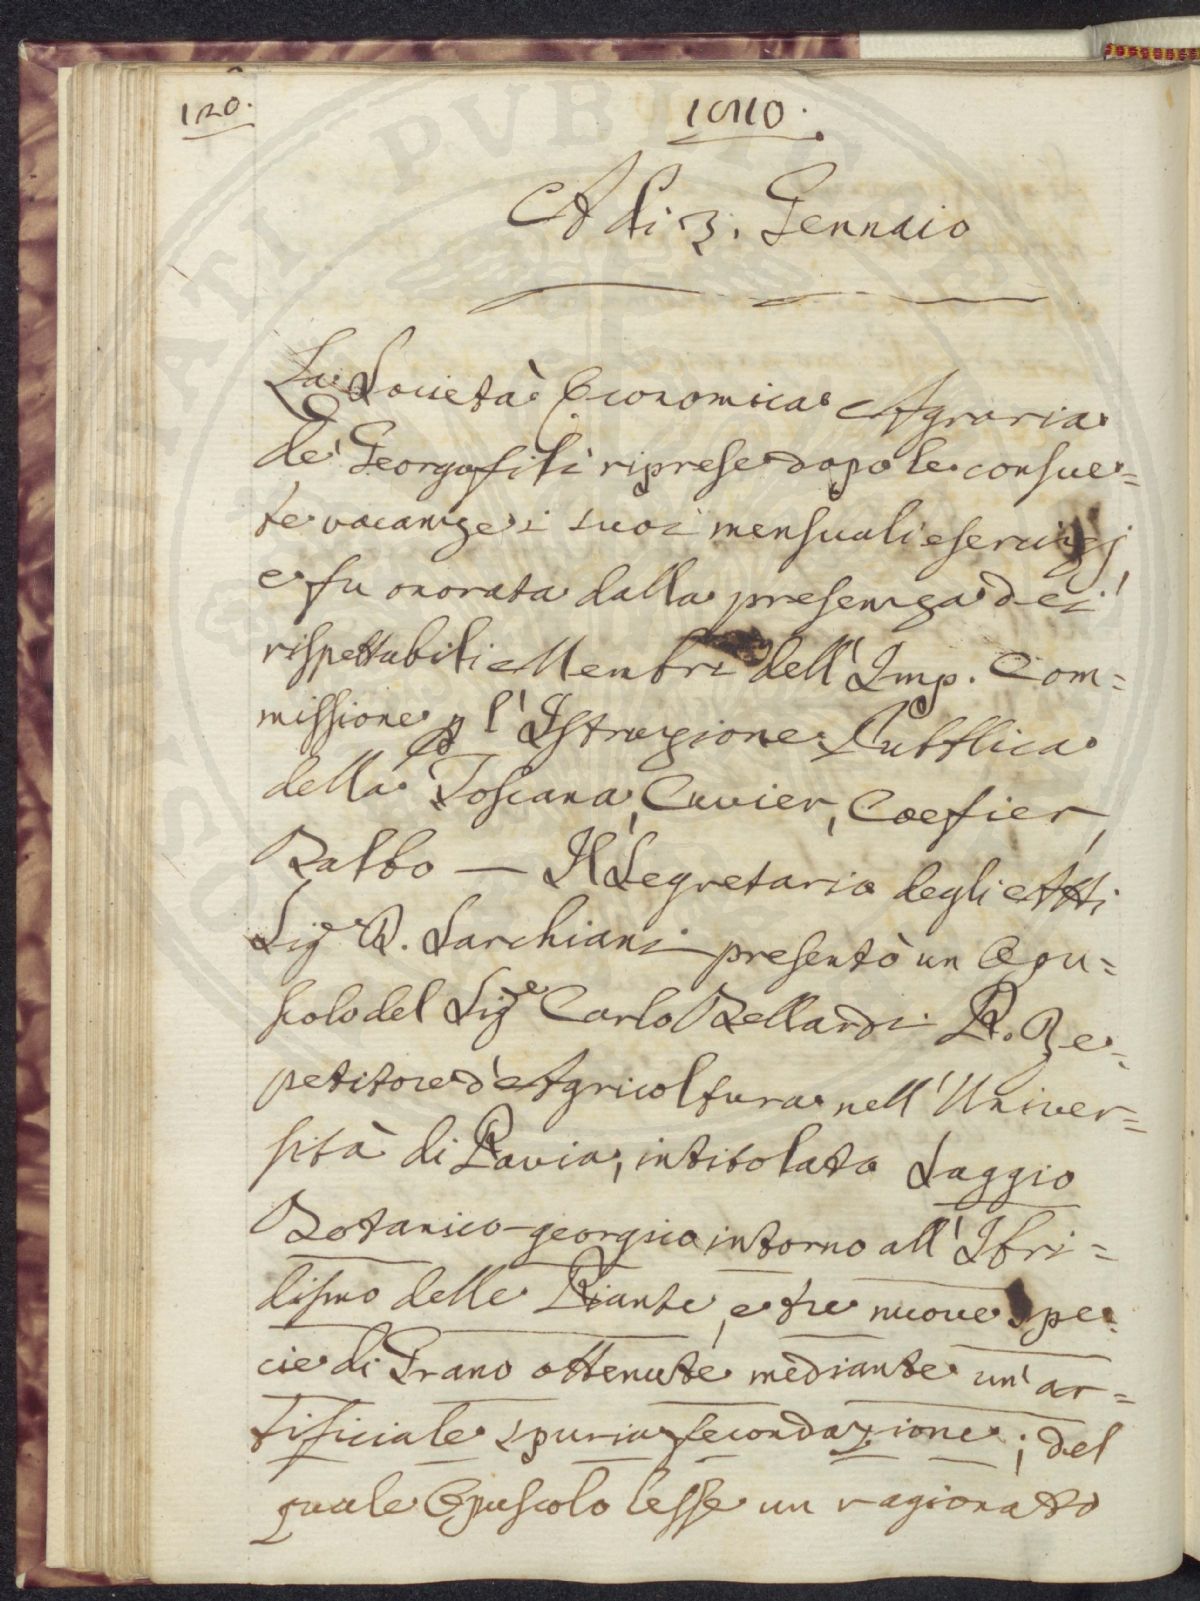 120.
1810.
A dì 3. Gennaio
La Società Economica Agraria
de' Georgofili riprese dopo le consue=
te vacanze i suoi mensuali esercizj,
e fu onorata dalla presenza dei
rispettabili Membri dell' Imp. Com=
missione p l' Istruzione Pubblica
della Toscana, Cuvier, Coefier,
Balbo — Il Segretario degli Atti
Sigr D. Sarchiani presentò un Opu=
scolo del Sigre Carlo Bellardi P. Re=
petitore d'Agricoltura nell' Univer=
sità di Pavia, intitolato Saggio
Botanico-georgico intorno all' Ibri=
dismo delle Piante, e tre nuove spe=
cie di Grano ottenute mediante un' ar=
tificiale spuria fecondazione; del
quale Opuscolo lesse un ragionato